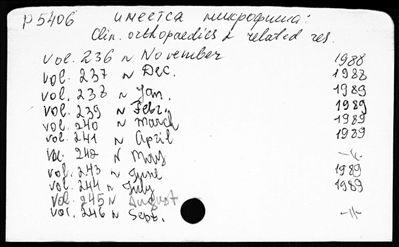 P5406 имеется микрофиша:
Clin. orthopaedics & related res.
vol. 236 N November 1988
vol. 237 N Dec. 1988
vol. 238 N Jan. 1989
vol. 239 N Febr. 1989
vol. 240 N March 1989
vol. 241 N April 1989
vol. 242 N May -"-
vol. 243 N June 1989
vol. 244 N July 1989
vol. 245 N August
vol. 246 N Sept. -"-